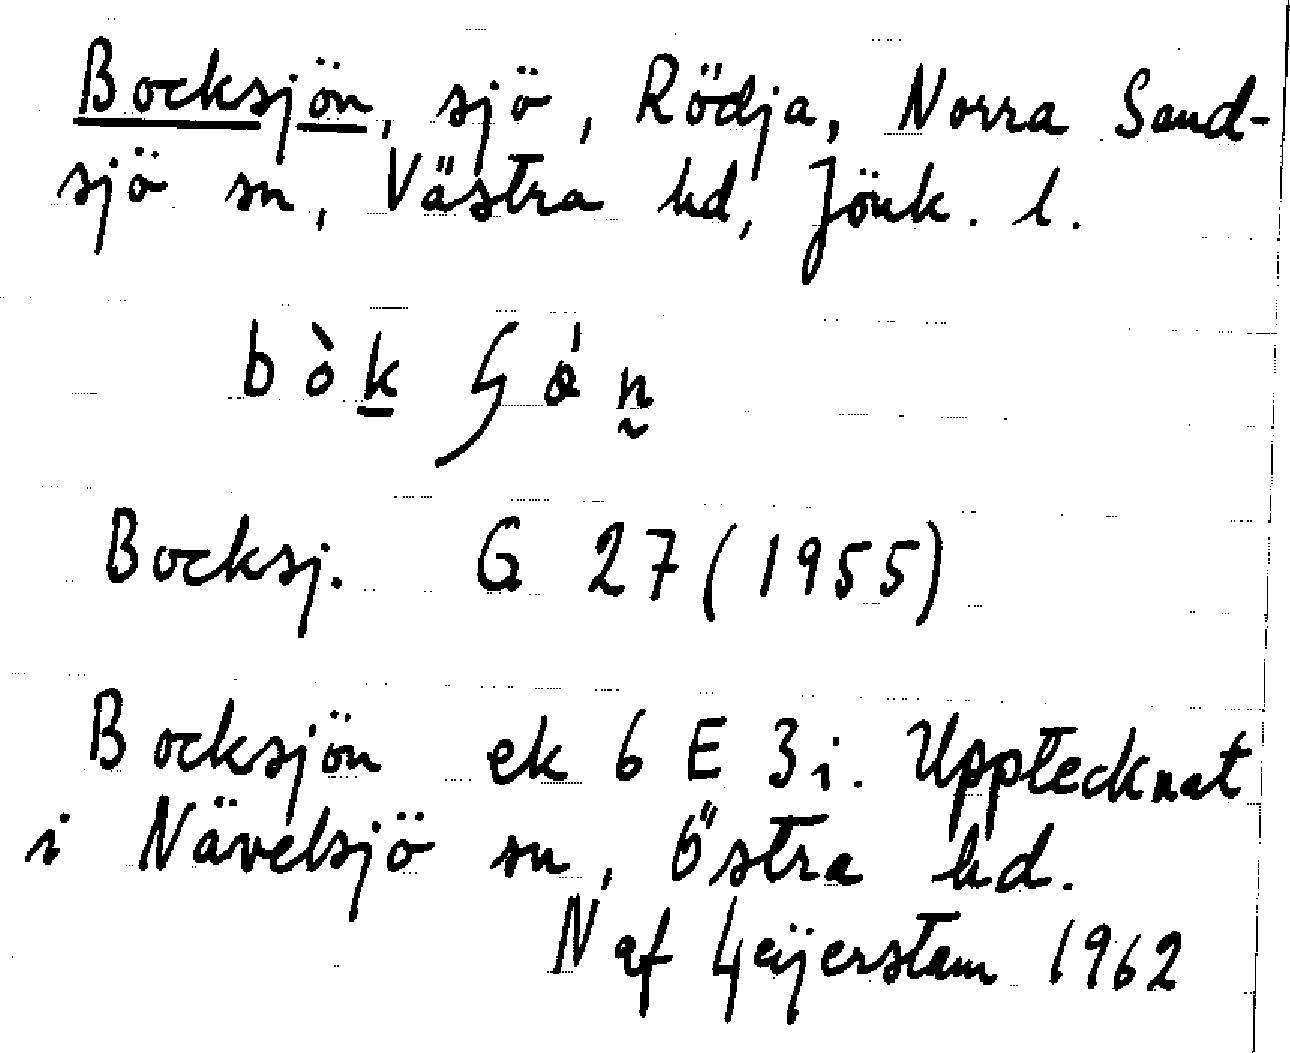 Bocksjön, sjö, Rödja, Norra Sand-
sjö sn, Västra hd, Jönk. l.
bòk
Bocksj. G 27 (1955)
Bocksjön ek 6 E 3i. Upptecknat
i Nävelsjö sn, Östra hd.
N af Geijerstam 1962